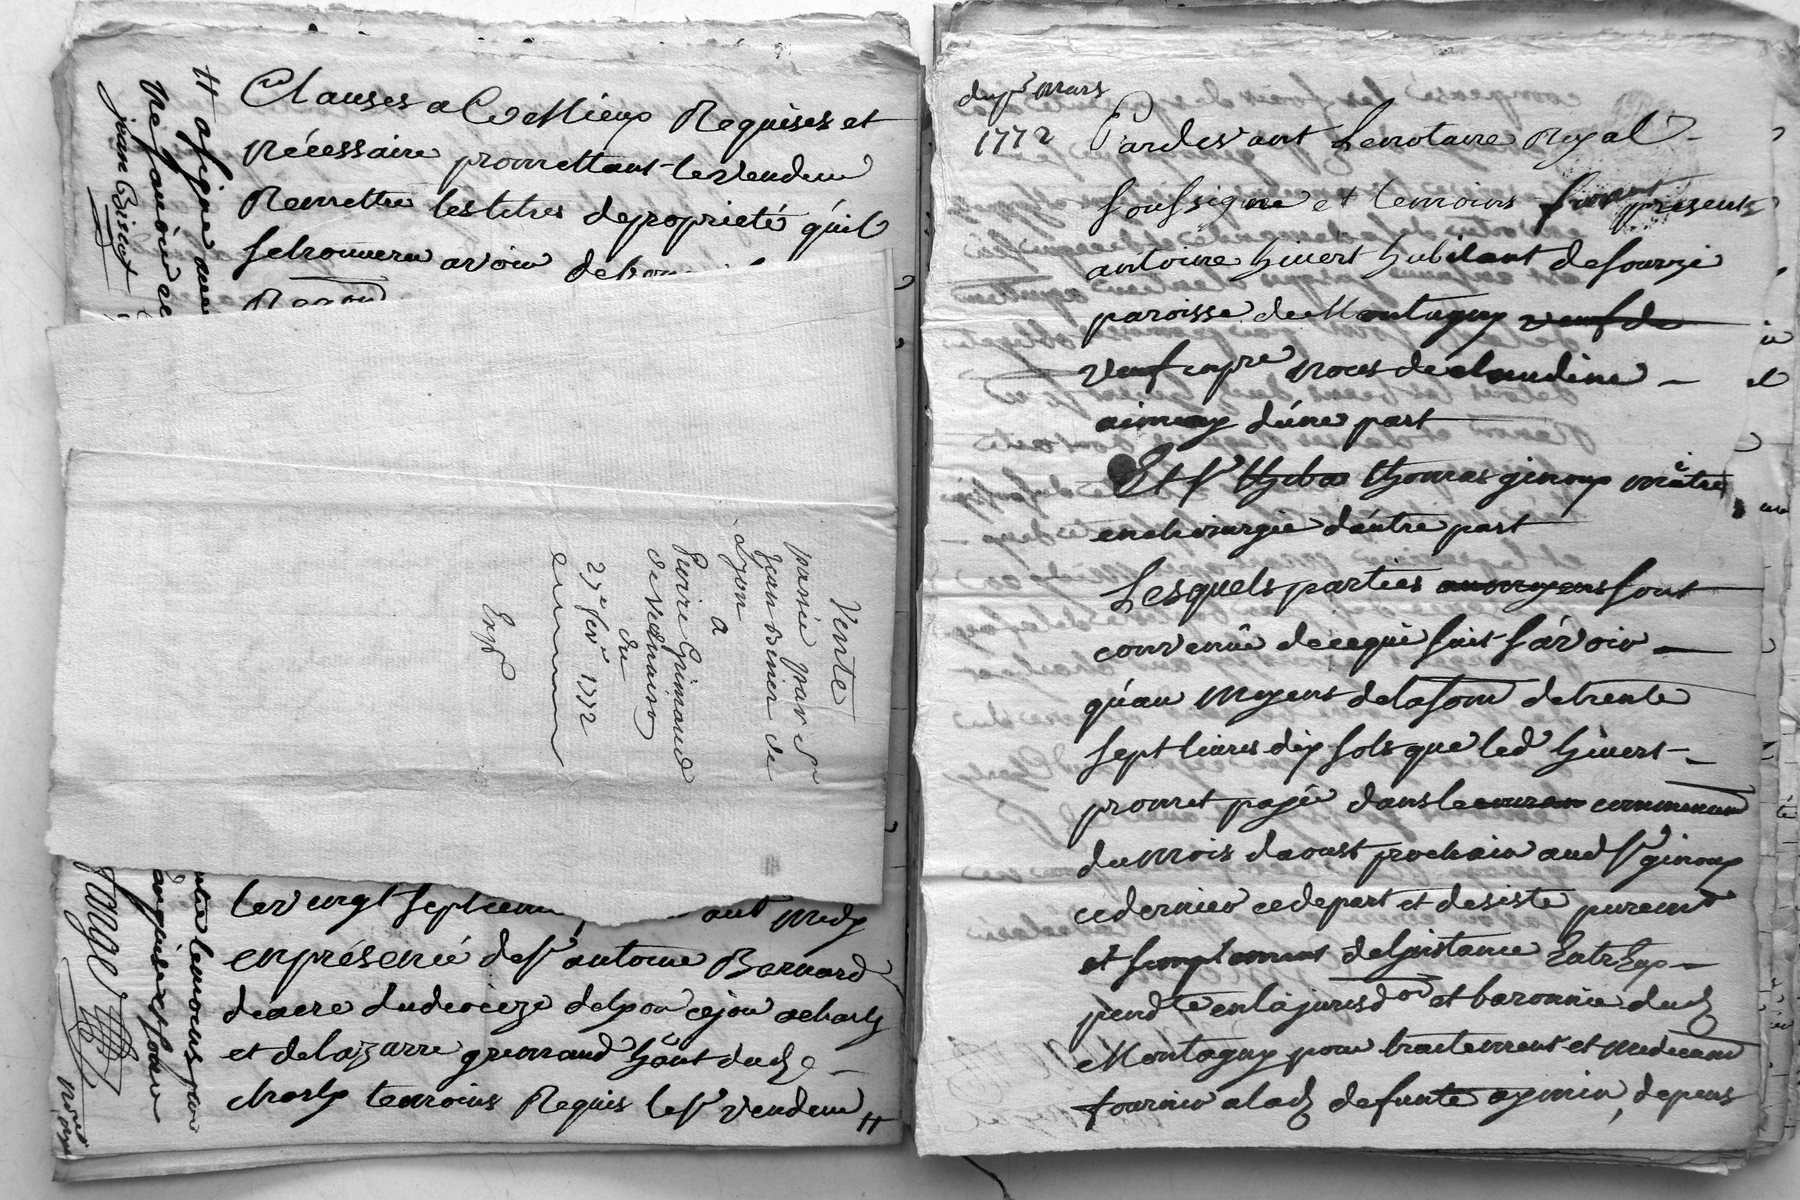 Clauses a Ce Mieux Requises et
Nécessaire promettant le vendeur
Remettre les titres de proprieté qu'il
se trouvera avoir de
# a signé avec
jean Briset
Vente
passée par sr
jean Binier de
Lyon
a
poire Grimaud
de vernaison
du
27e fevr 1772
Exp
le vingt sept avant midy
en présence de sr antoine Bernard
diacre du diocèze de lyon
et de lazarre grimaud hâut dud
charly temoins Requis le sr vendeur #
ntre temoins
nore roy
du pr mars
1772 Pardevant Le notaire Royal
soussigné et temoins furent présents
antoine hivert habitant de sourzi
paroisse de Montagny veuf de
veuf en pre noces de claudine
aimay d'une part
Et sr thiba thomas ginoux mâitre
en chirurgie d'autre part
Lesquels parties au moyens sont
convenûe de ce qui suit sávoir
qu'au moyens de la som de trente
sept livres dix sols que led hivert
promet payé dans le couran commencem
du mois d'aoust prochain aud sr ginoux
ce dernier ce depart et desiste purem
et simplement de l'jnstance Entr Eux
pendte en la jurisdon et baronnie dud
Montagny pour traitement et medicam
fournir a lad defunte aymin, depens